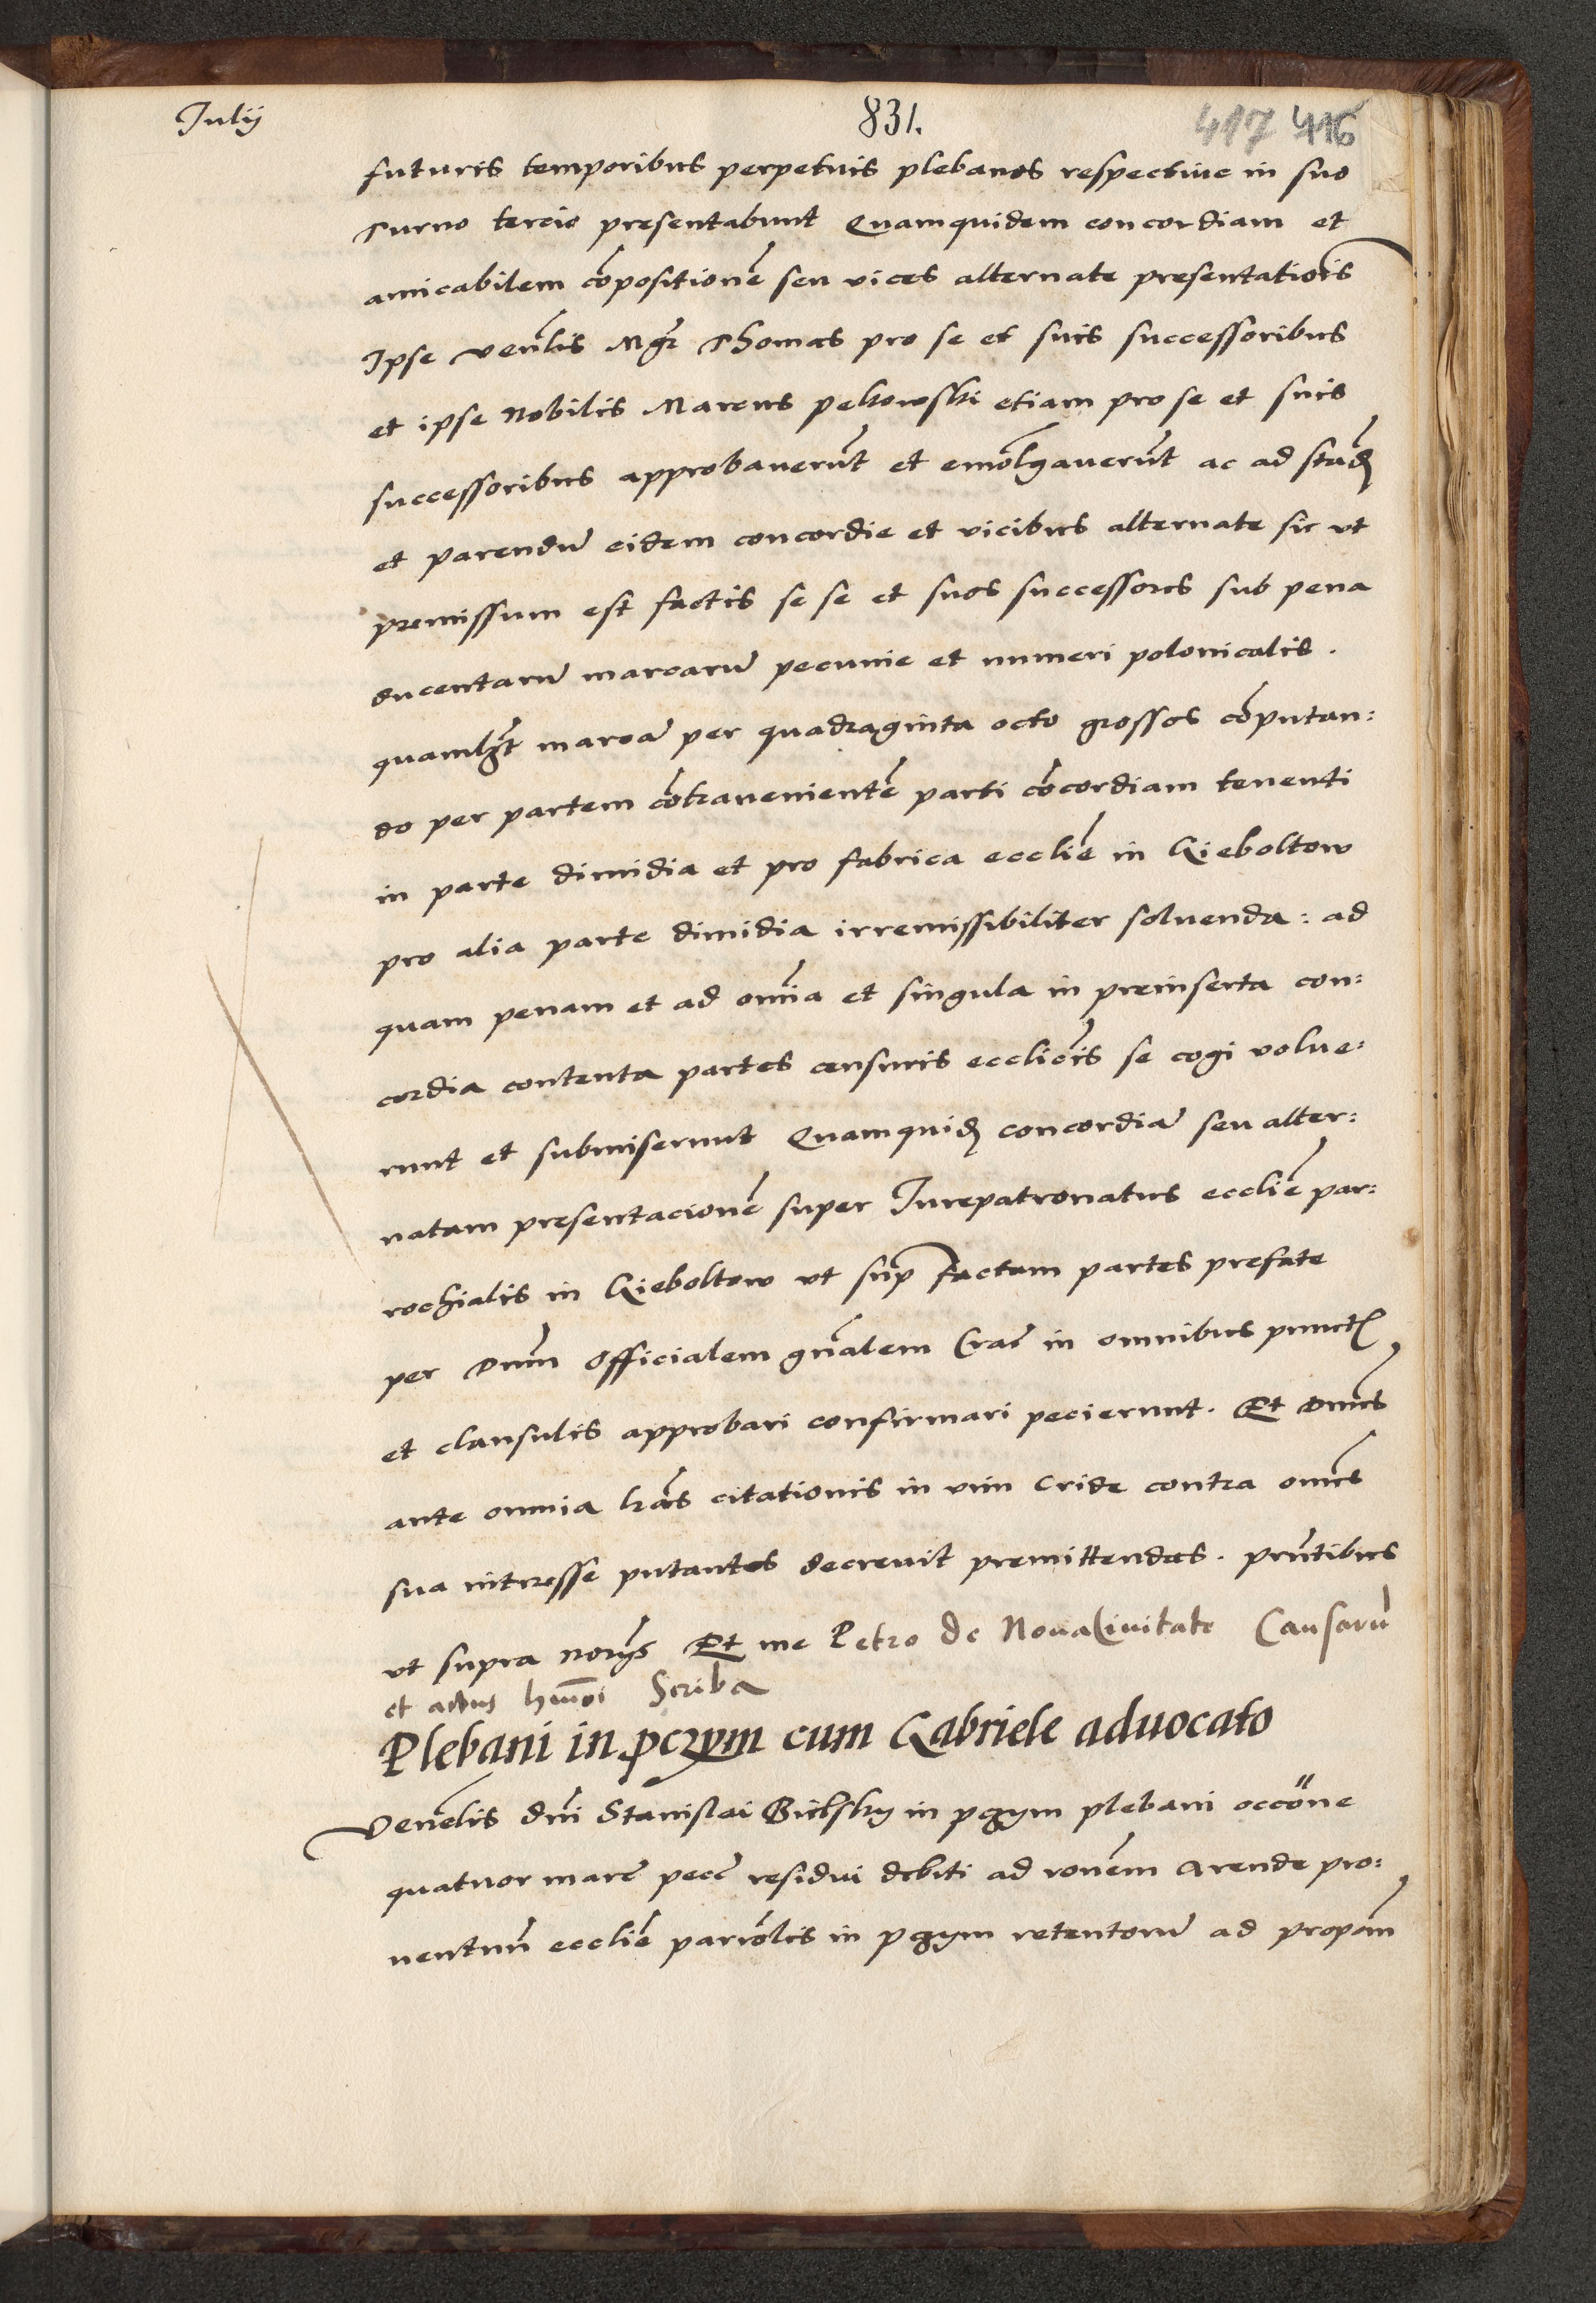 Julij
831.
417 416
futuris temporibus perpetuis plebanos respective in suo
turno tercio presentabunt Quamquidem concordiam et
amicabilem cõpositionẽ seu vices alternate presentatiõis
Ipse Venlis Mgr Thomas pro se et suis successoribus
et ipse Nobilis Marcus pelkowski etiam pro se et suis
successoribus approbaverũt et emolgaverũt ac ad stãd
et parendũ eidem concordie et vicibus alternate sic vt
premissum est factis se se et suos successores sub pena
ducentarũ marcarũ pecunie et numeri polonicalis .
quamlʒt marcã per quadraginta octo grossos cõputan:
do per partem cõtravenientẽ parti cõcordiam tenenti
in parte dimidia et pro fabrica ecclie in Kieboltow
pro alia parte dimidia irremissibiliter soluenda: ad
quam penam et ad omĩa et singula in preinserta con:
cordia contenta partes censuris eccliẽis se cogi volue:
runt et submiserunt Quamquid concordiã seu alter:
natam presentacionẽ super Jurepatronatus ecclie par:
rochialis in Kieboltow vt sup factam partes prefate
per Dnum Officialem gñalem Crac in omnibus punct
et clausulis approbari confirmari pecierunt. Et Dnus
ante omnia lras citationis in vim Cride contra omes
sua interesse putantes decrevit premittendas. pñtibus
vt supra norijs Et me Petro de NovaCivitate Causarũ
et actus hmõi Scriba
Plebani in pczym cum Gabriele aduocato
Venlis dni Stanislai Bielsky in pczym plebani occõne
quatuor marc pecc residui debiti ad ronem Arende pro:
uentuũ ecclie parrõlis in pczym retentorũ ad propoñ